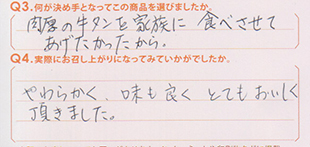 Q3.何が決め手となってこの商品を選びましたか。
肉厚の牛タンを家族に食べさせて
あげたかったから。
Q4.実際にお召し上がりになってみていかがでしたか。
やわらかく、味も良く とてもおいしく
頂きました。